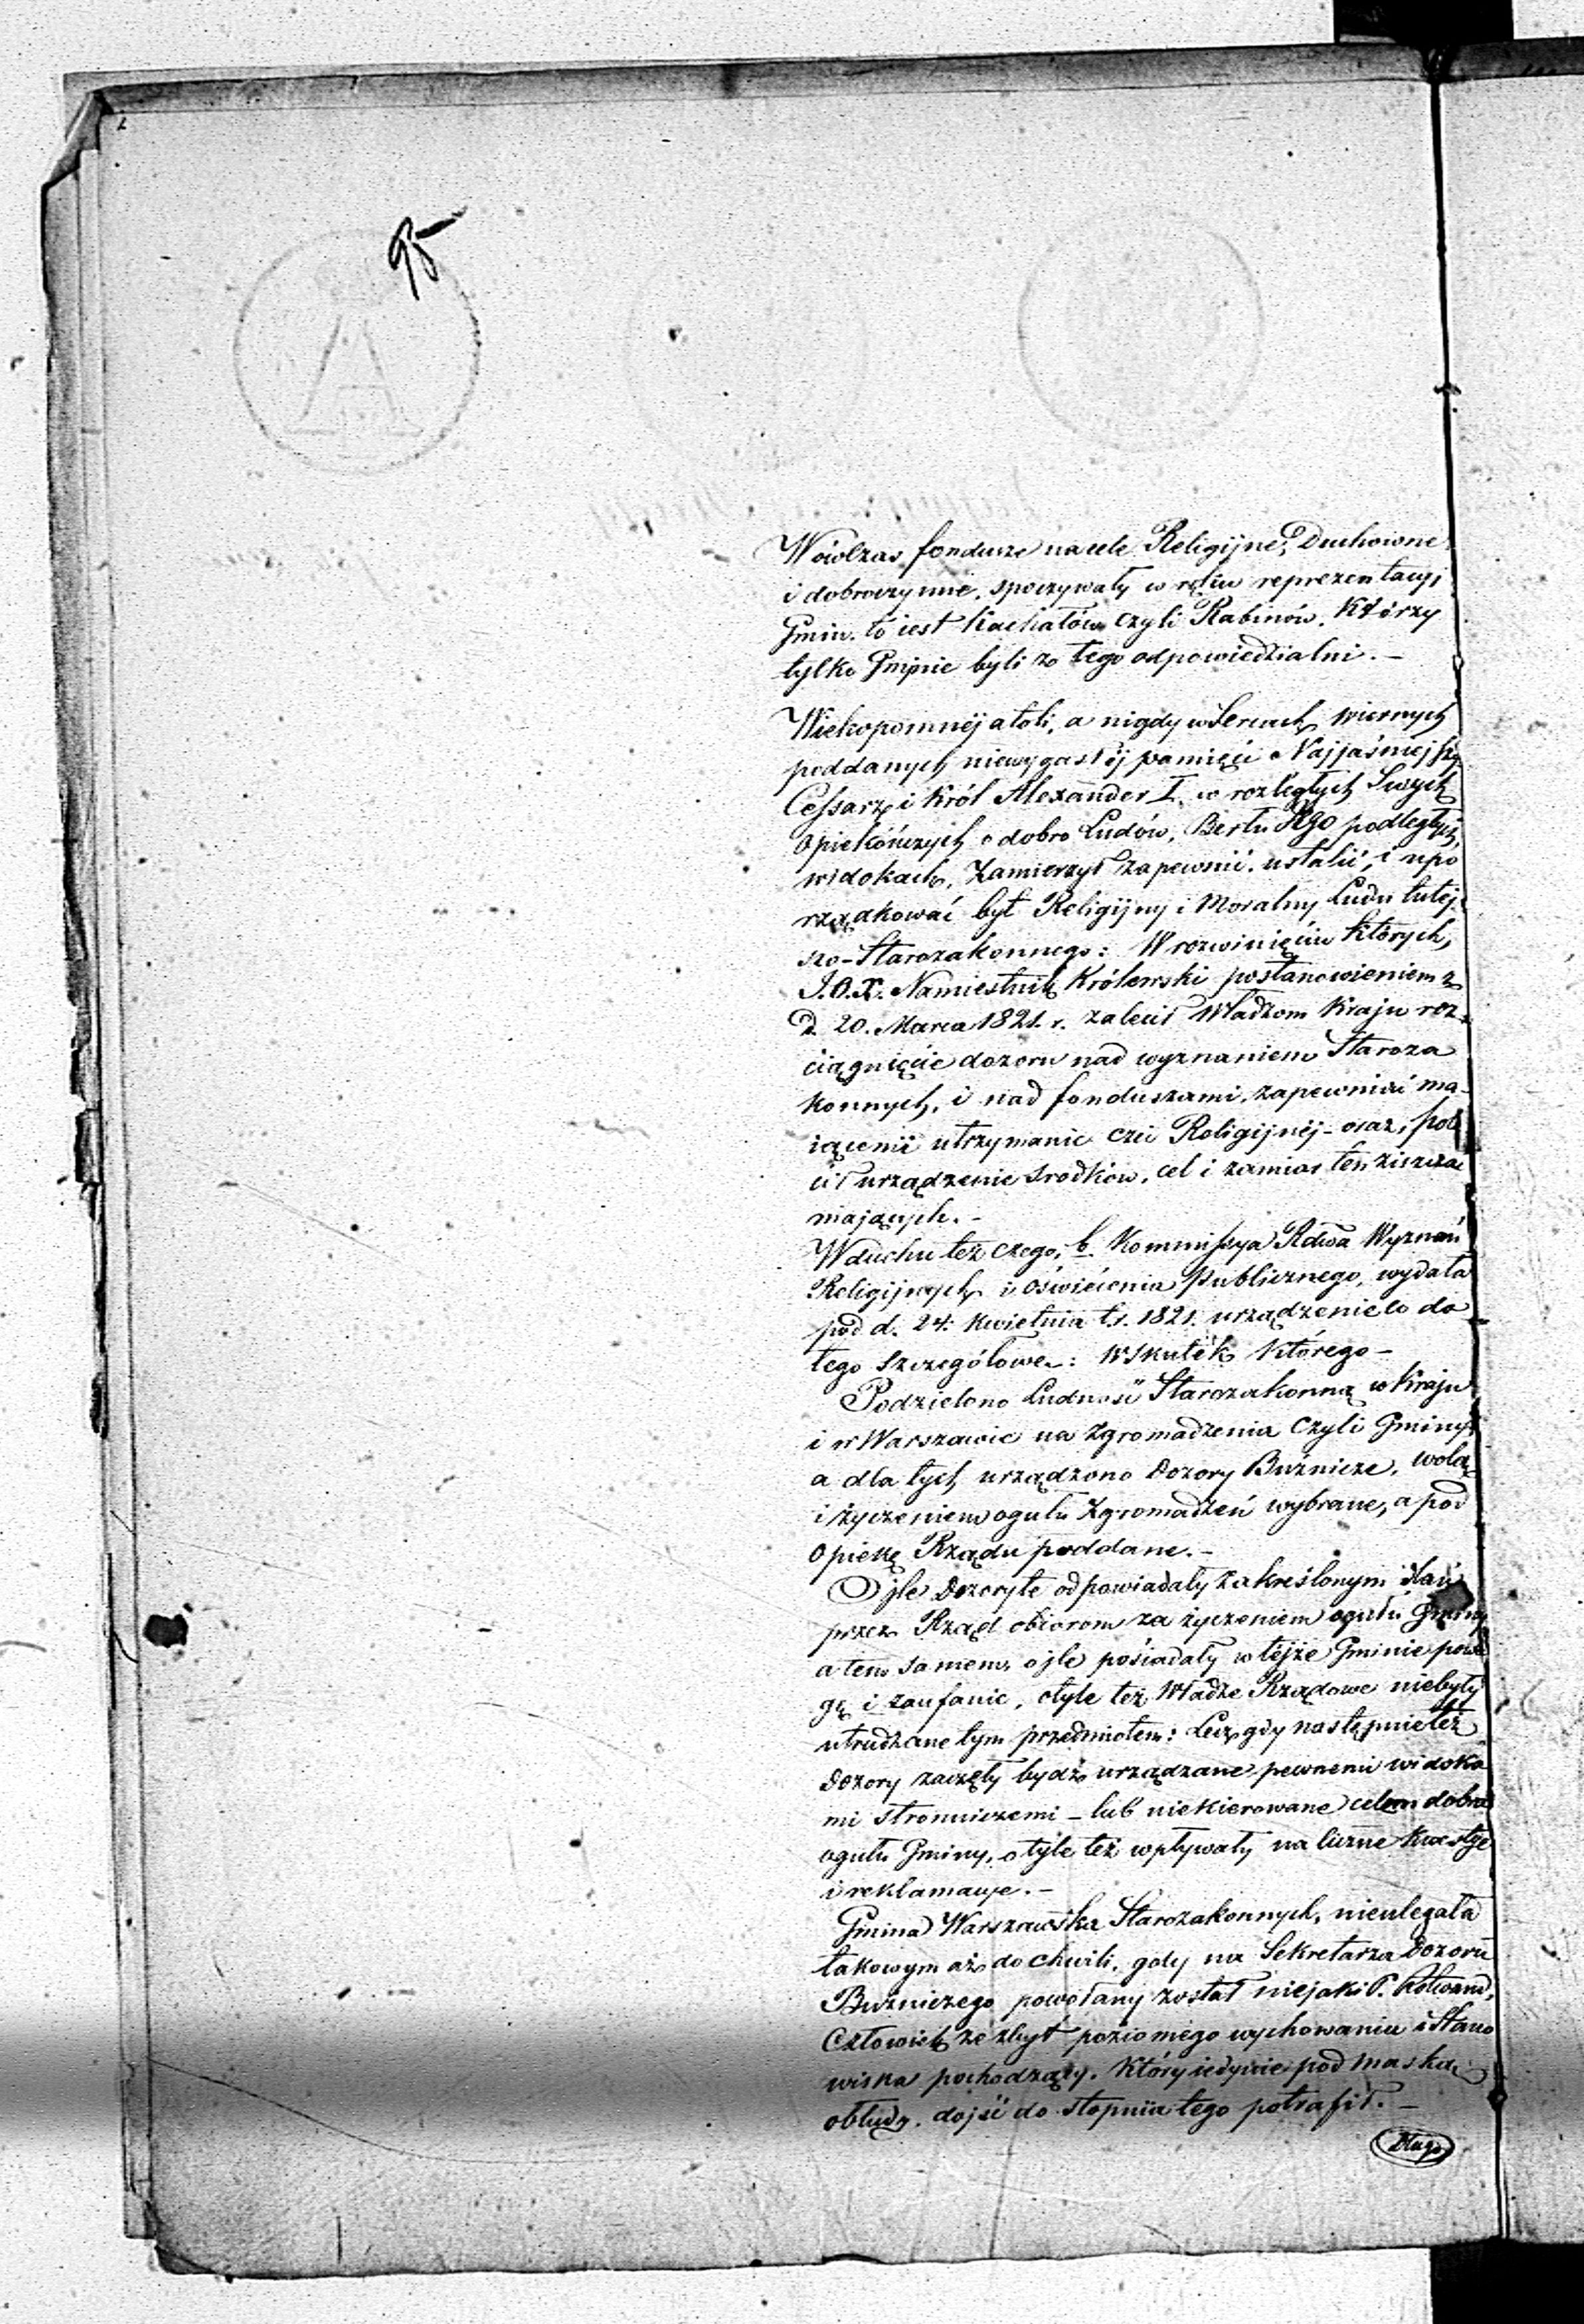 95
Wówczas fundusze na cele Religijne, Duchowne
i dobroczynne, spoczywały w ręku reprezentacyj
Gmin, to iest Kachałów czyli Rabinów, Którzy
tylko Gminie byli za tego odpowiedzialni. –
Wiekopomnéj atoli, a nigdy w Sercach wiernych
poddanych niewygasłéj pamięci Najjaśniejszy
Cessarz i Król Alexander I. w rozległych Swych
opiekóńczych o dobro Ludów, Berłu Jego podległych
widokach, Zamierzył zapewnić, ustalić, i upo
rządkować byt Religijny i Moralny Ludu tutej-
szo-Starozakonnego: W rozwinięciu których,
J.O.X. Namiestnik Królewski postanowieniem z
d. 20. Marca 1821. r. zalecił Władzom Kraju roz-
ciągnięcie dozoru nad wyznaniem Staroza
konnych, i nad funduszami, zapewnić ma-
iącemi utrzymanie czci Religijnéj – oraz, pole
cił urządzenie srodków, cel i zamiar ten ziszczac
maiących. –
W duchu też czego, b. Kommissya Rdwa Wyznań
Religijnych i Oświécenia Publicznego, wydała
pod d. 24. Kwietnia t.r. 1821. urządzenie co do
tego szczegółowe: W skutek którego –
Podzielono Ludność Starozakonną w Kraju
i w Warszawie na Zgromadzenia czyli Gminy,
a dla tych urządzono Dozory Bużnicze, wolą
i życzeniem ogułu Zgromadzeń wybrane, a pod
Opiekę Rządu poddane. –
O jle Dozory te odpowiadały zakreślonym dlań
przez Rząd obiorom za życzeniem ogułu Gminy
a tem samem, o jle pośiadały w tejże Gminie powa
gę i zaufanie, otyle też Władze Rządowe niebyły
utrudzane tym przedmiotem: Lecz gdy następnie też
Dozory zaczęły bydź urządzane pewnemi widoka
mi stronniczemi – lub niekierowane celem dobra
ogułu Gminy, o tyle też wpływały na liczne Kwestye
i reklamacye. –
Gmina Warszawska Starozakonnych, nieulegała
takowym aż do chwili, gdy na Sekretarza Dozoru
Bużniczego powołany został niejaki P. Rotwand,
Człowiek ze zbyt poziomego wychowania i Stano
wiska pochodzący, Który iedynie pod maską
obłudy, dojść do stopnia tego potrafił. –
Długo